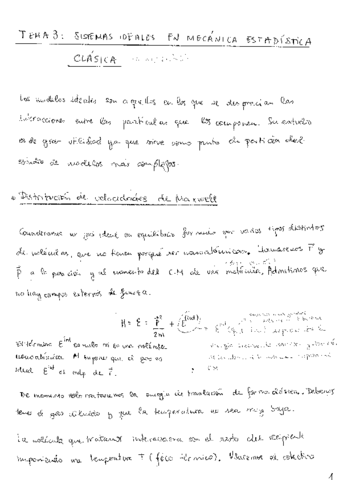 TEMA 3: SISTEMAS IDEALES EN MECÁNICA ESTADÍSTICA
CLÁSICA
Los modelos ideales son aquellos en los que se desprecian las
interacciones entre las partículas que los componen. Su estudio
es de gran utilidad ya que sirve como punto de partida del
estudio de modelos más complejos.
Distribución de velocidades de Maxwell
Consideramos un gas ideal en equilibrio formado por varios tipos distintos
de moléculas, que no tienen porqué ser monoatómicas. Llamaremos r⃗ y
p⃗ a la posición y al momento del C.M de una molécula. Admitimos que
no hay campos externos de fuerza.
H = E = p⃗²/2m + E^(int)
El término E^int es nulo si es una molécula
monoatómica. Al suponer que el gas es
ideal E^int es indep de r⃗.
De momento solo trataremos la energía de translación de forma clásica. Debemos
tener el gas diluido y que la temperatura no sea muy baja.
La molécula que tratamos interacciona con el resto del recipiente
imponiendo una temperatura T (foco térmico). Usaremos el colectivo
1